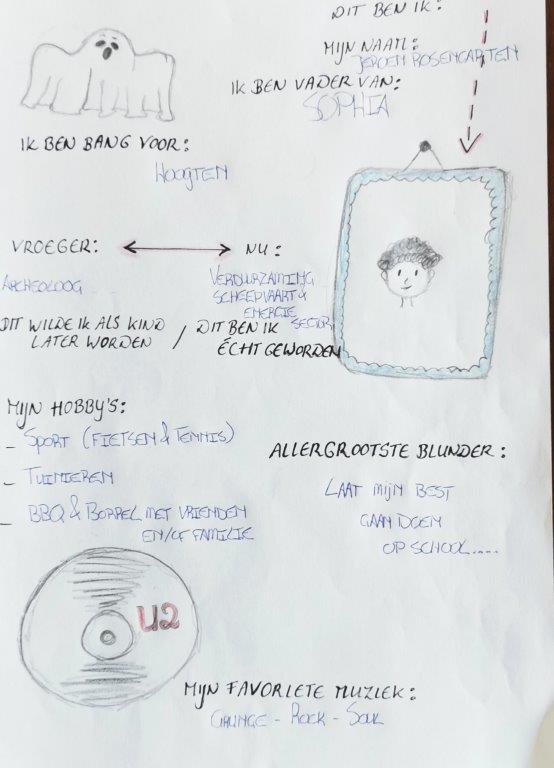 DIT BEN IK:
MIJN NAAM:
JEROEN ROSENGARTEN
IK BEN VADER VAN:
SOPHIA
IK BEN BANG VOOR:
HOOGTEN
VROEGER:
NU:
ARCHEOLOOG
VERDUURZAMING
SCHEEPVAART &
ENERGIE
SECTOR
DIT WILDE IK ALS KIND
LATER WORDEN
/ DIT BEN IK
ÉCHT GEWORDEN
MIJN HOBBY'S:
- SPORT (FIETSEN & TENNIS)
- TUINIEREN
- BBQ & BORREL MET VRIENDEN
EN/OF FAMILIE
ALLERGROOTSTE BLUNDER:
LAAT MIJN BEST
GAAN DOEN
OP SCHOOL.....
U2
MIJN FAVORIETE MUZIEK:
GRUNGE - ROCK - SOUL